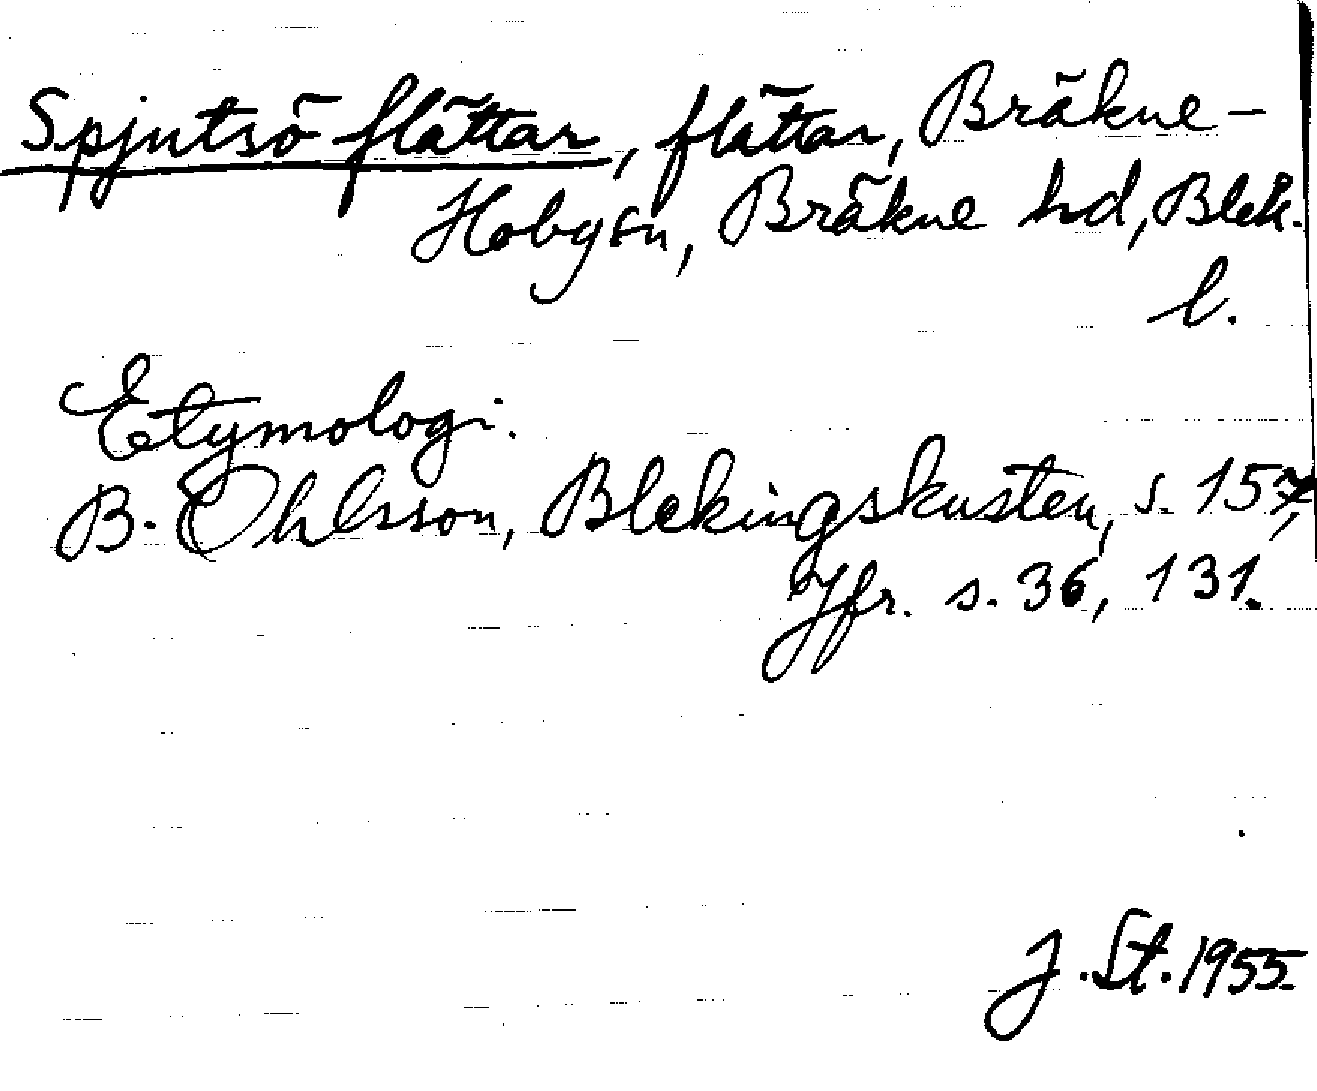 Spjutsö flättar, flättar, Bräkne-
Hobysn, Bräkne hd, Blek.
l.
Etymologi.
B. Ohlsson, Blekingskusten, s. 157,
Jfr. s. 36, 131.
J. St. 1955